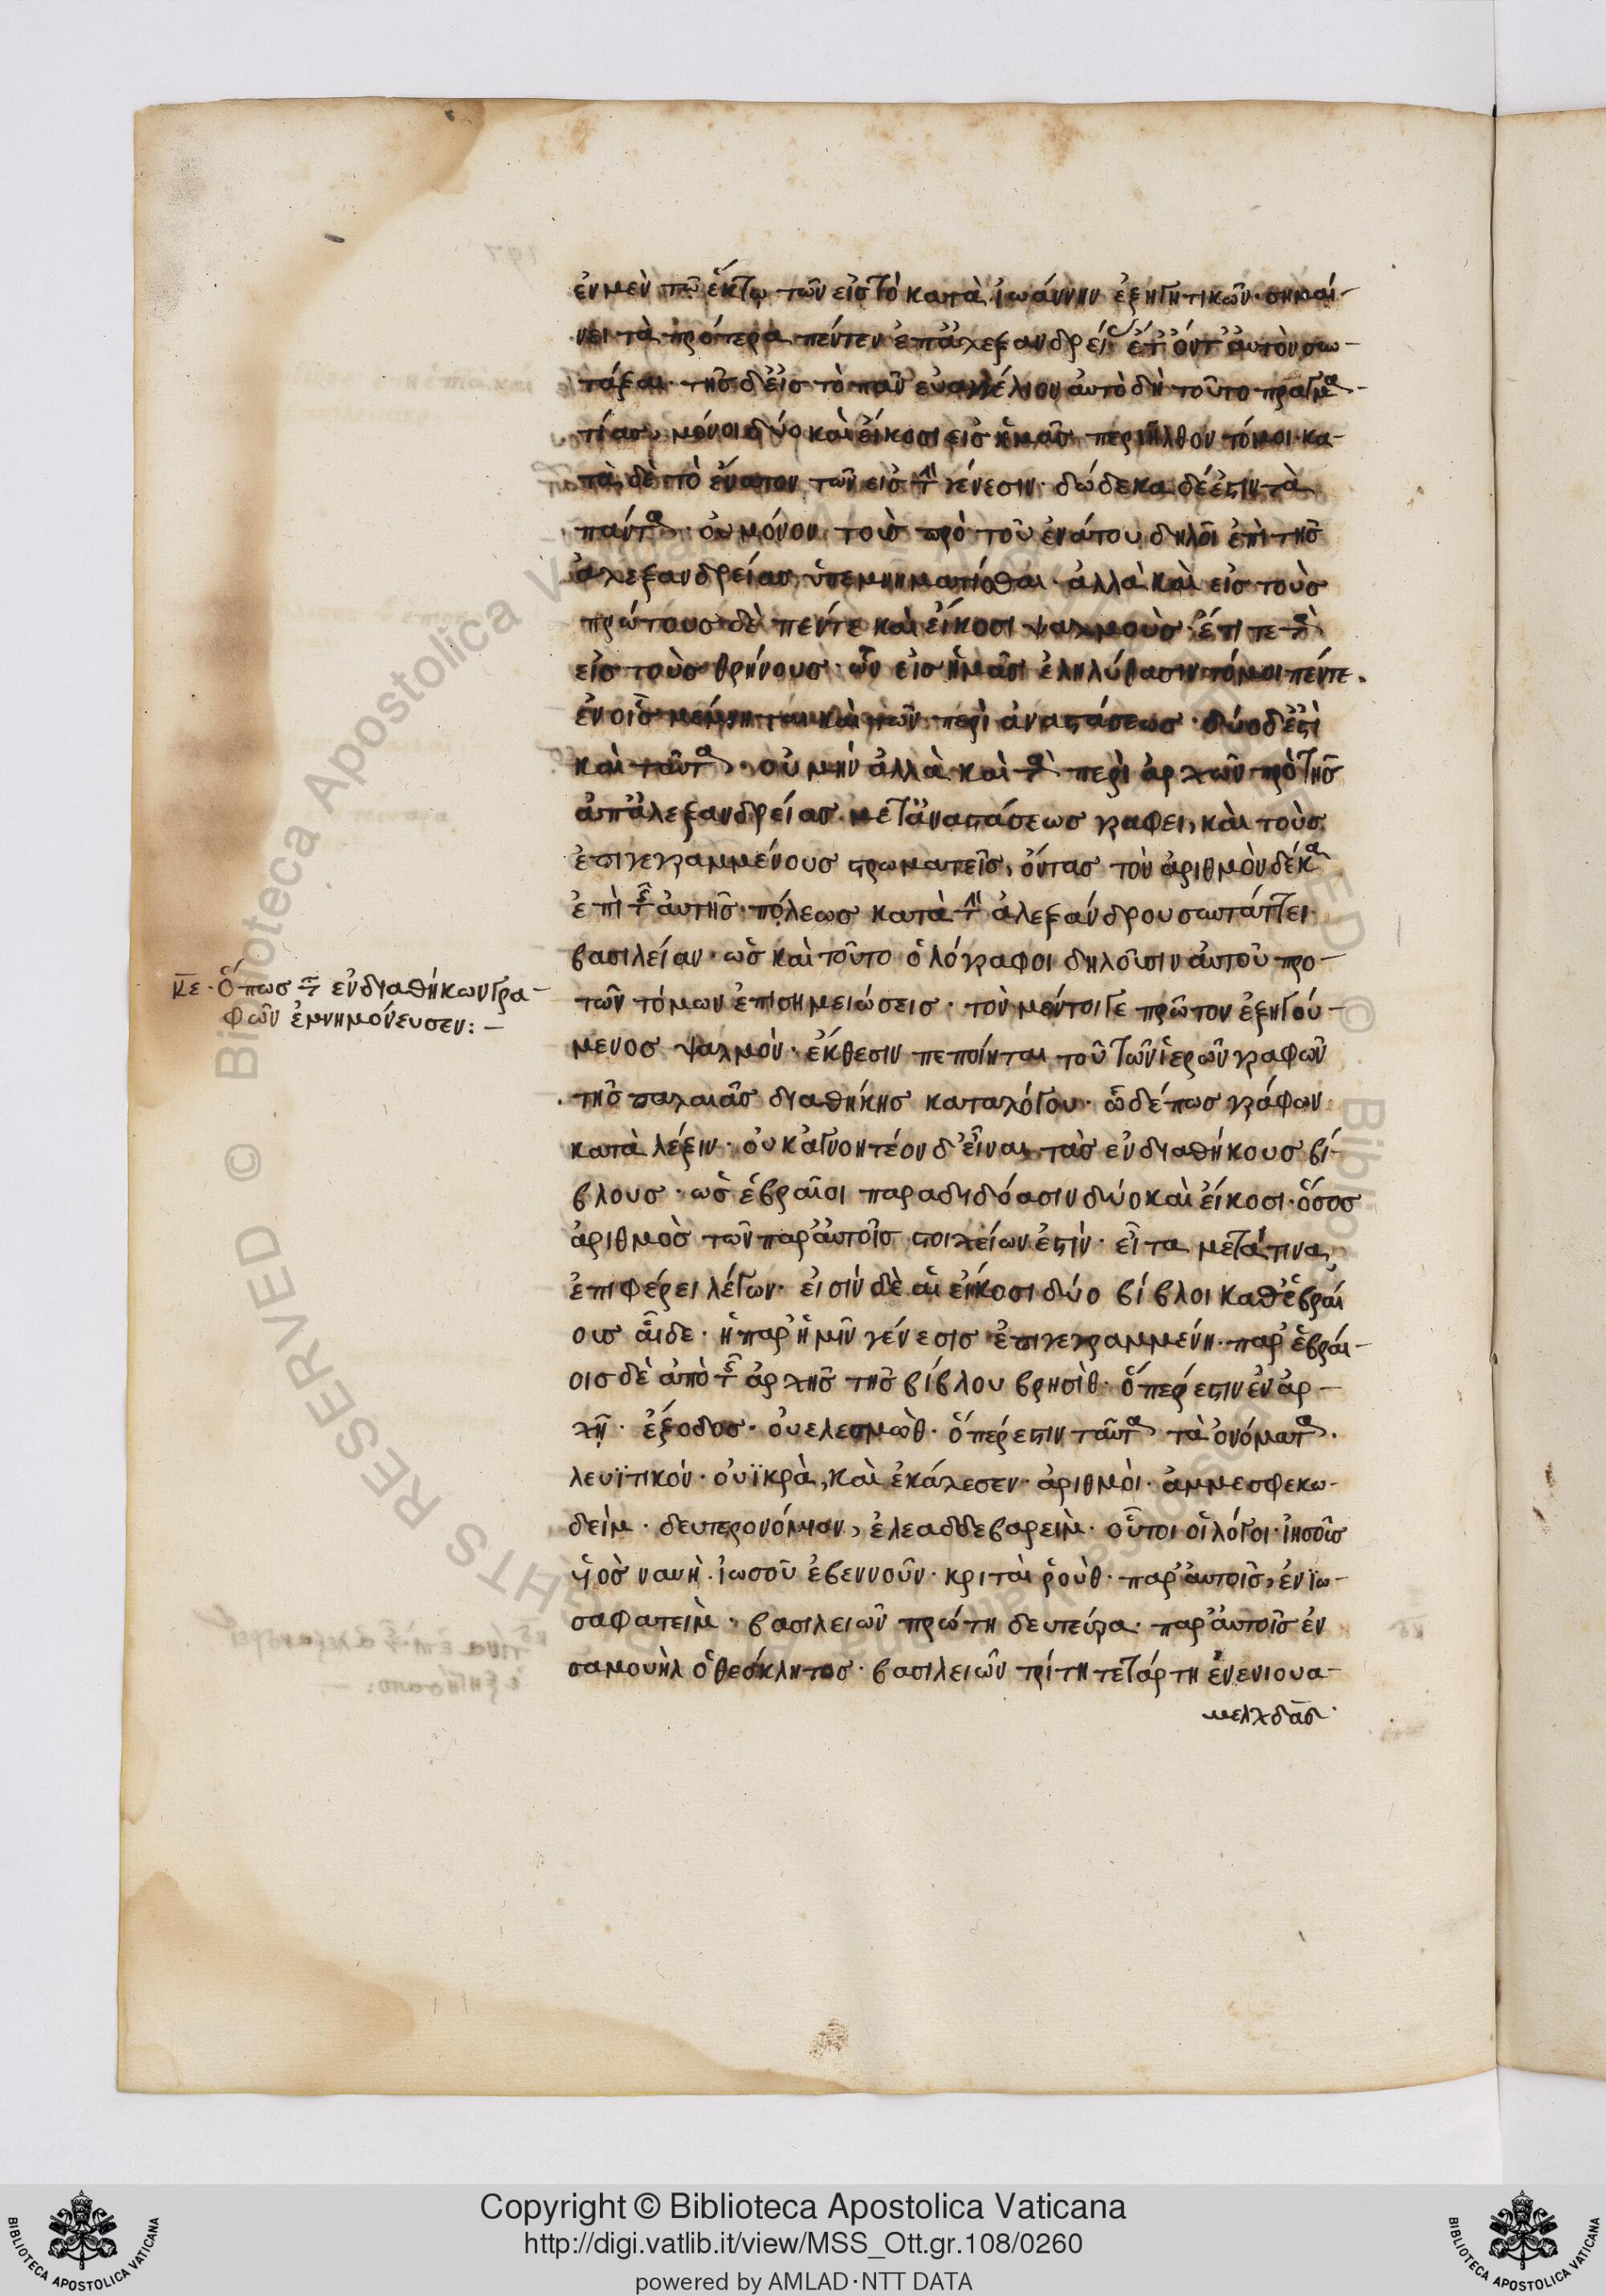 ἐν μὲν τῷ ἕκτῳ τῶν εἰς τὸ κατὰ ἰωάννην ἐξηγητικῶν· σημαί-
νει τὰ πρότερα πέντε ἐπ' ἀλεξανδρεί ἔτ' ὄντ' αὐτὸν συν-
τάξαι· τῆς δ' εἰς τὸ πᾶν εὐαγγέλιον αὐτὸ δὴ τοῦτο πραγμα-
τείας, μόνοι δύο καὶ εἴκοσι εἰς ἡμᾶς περιῆλθον τόμοι· κα-
τὰ δὲ τὸ ἔνατον τῶν εἰς τὴν γένεσιν· δώδεκα δέ ἐστιν τὰ
πάντα· οὐ μόνον τοὺς πρὸ τοῦ ἐνάτου δηλοῖ ἐπὶ τῆς
ἀλεξανδρείας ὑπεμνηματίσθαι· ἀλλὰ καὶ εἰς τοὺς
πρώτους δὲ πέντε καὶ εἴκοσι ψαλμοὺς· ἔτι τε τὰ
εἰς τοὺς θρήνους· ὧν εἰς ἡμᾶς ἐληλύθασιν τόμοι πέντε·
ἐν οἷς μέμνηται καὶ τῶν περὶ ἀναστάσεως· δύο δ' ἐστὶ
καὶ ταῦτα· οὐ μὴν ἀλλὰ καὶ τὰ περὶ ἀρχῶν πρὸ τῆς
ἀπ' ἀλεξανδρείας μεταναστάσεως γράφει, καὶ τοὺς
ἐπιγεγραμμένους στρωματεῖς, ὄντας τὸν ἀριθμὸν δέκα
ἐπὶ τῆς αὐτῆς πόλεως κατὰ τὴν ἀλεξάνδρου συντάττει
βασιλείαν· ὡς καὶ τοῦτο ὁλόγραφοι δηλοῦσιν αὐτοῦ προ-
τῶν τόμων ἐπισημειώσεις· τὸν μέντοιγε πρῶτον ἐξηγού-
μενος ψαλμὸν· ἔκθεσιν πεποίηται τοῦ τῶν ἱερῶν γραφῶν
τῆς παλαιᾶς διαθήκης καταλόγου· ὧδέ πως γράφων
κατὰ λέξιν· οὐκ ἀγνοητέον δ' εἶναι τὰς ἐνδιαθήκους βί-
βλους· ὡς ἑβραῖοι παραδιδόασιν δύο καὶ εἴκοσι· ὅσος
ἀριθμὸς τῶν παρ' αὐτοῖς στοιχείων ἐστίν· εἶτα μετά τινα
ἐπιφέρει λέγων· εἰσὶν δὲ αἱ εἴκοσι δύο βίβλοι καθ' ἑβραί
ους αἵδε· ἡ παρ' ἡμῖν γένεσις ἐπιγεγραμμένη· παρ' ἑβραί-
οις δὲ ἀπὸ τῆς ἀρχῆς τῆς βίβλου βρησὶθ· ὅπερ ἐστιν ἐν ἀρ-
χῇ· ἔξοδος· οὐελεσμὼθ· ὅπερ ἐστιν ταῦτα τὰ ὀνόματα·
λευϊτικόν· οὐϊκρὰ, καὶ ἐκάλεσεν· ἀριθμοὶ· ἀμμεσφεκω-
δείμ· δευτερονόμιον, ἐλεαδδεβαρεὶμ· οὗτοι οἱ λόγοι· ἰησοῦς
υἱὸς ναυὴ· ἰωσοῦ ἐβεννοῦν· κριταὶ ῥοὺθ· παρ' αὐτοῖς, ἐν ἰω-
σαφατεὶμ· βασιλειῶν πρώτη δευτέρα· παρ' αὐτοῖς ἐν
σαμουὴλ ὁ θεόκλητος· βασιλειῶν τρίτη τετάρτη ἐν ενιουα-
μελχδαδ·
κε· ὅπως τῶν ἐνδιαθήκων γρα-
φῶν ἐμνημόνευσεν:-
Copyright © Biblioteca Apostolica Vaticana
http://digi.vatlib.it/view/MSS_Ott.gr.108/0260
powered by AMLAD·NTT DATA